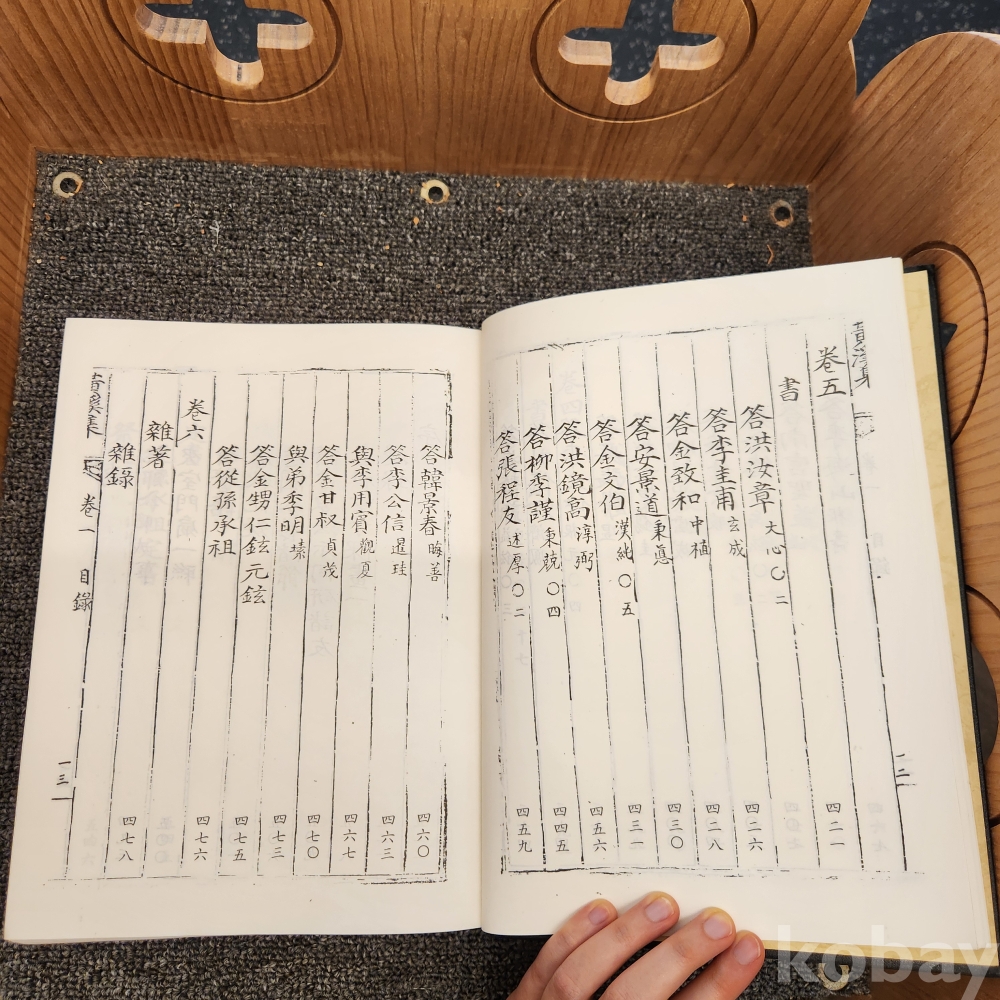 卷五 四二一
書
答洪汝章 大心 〇二 四二六
答李圭甫 玄成 四二八
答金致和 中植 四三〇
答安景道 秉悳 四三一
答金文伯 漢純 〇五 四五六
答洪鏡高 淳弼 四四五
答柳季謹 秉兢 〇四
答張程友 述厚 〇二 四五九
一二
答韓景春 晦善 四六〇
答李公信 暹珪 四六三
與李用賓 觀夏 四六七
答金甘叔 貞茂 四七〇
與弟季明 㙤 四七三
答金甥仁鉉元鉉 四七五
答從孫承祖 四七六
卷六
雜著
雜錄 四七八
卷一 目錄
一三
kobay